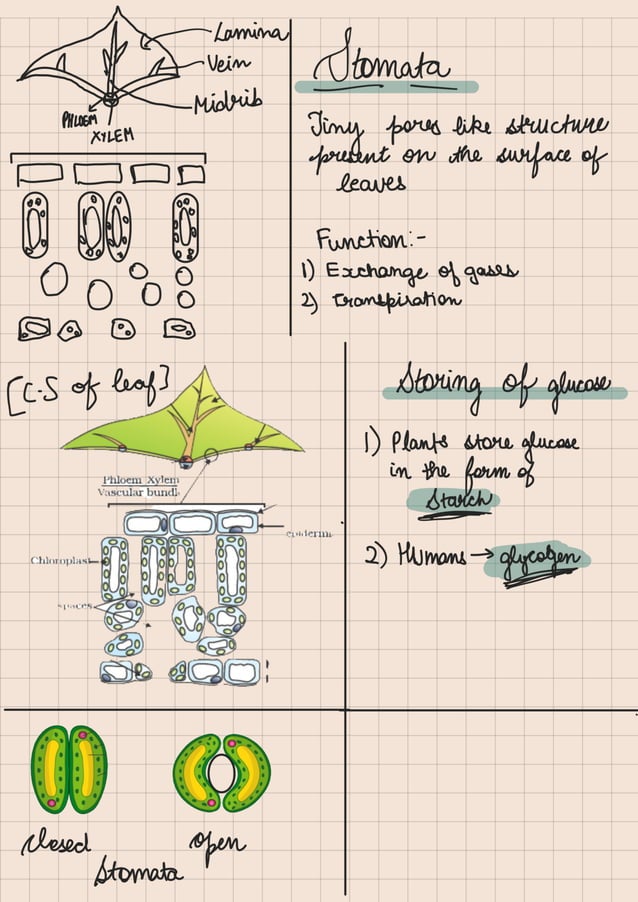 Lamina
Vein
Midrib
PHLOEM
XYLEM
Stomata
Tiny pores like structure
present on the surface of
leaves
Function:-
1) Exchange of gases
2) Transpiration
[C-S of leaf]
Phloem Xylem
Vascular bundl
epiderm
Chloroplast
spaces
Storing of glucose
1) Plants store glucose
in the form of
Starch
2) Humans → glycogen
closed
open
Stomata